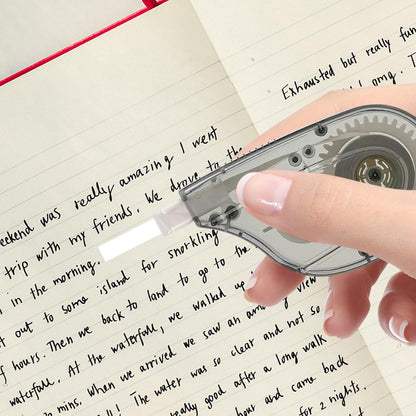 eekend was really amazing I went
trip with my friends. We drove to the
in the morning.
out to some island for snorkling
f hours. Then we back to land to go to the
waterfall. At the waterfall, we walked up
mins. when we arrived we saw an amazing view
ll! The water was so clear and not so
really good after a long walk
hour and came back
for 2 nights.
Exhausted but really fun
omg. T